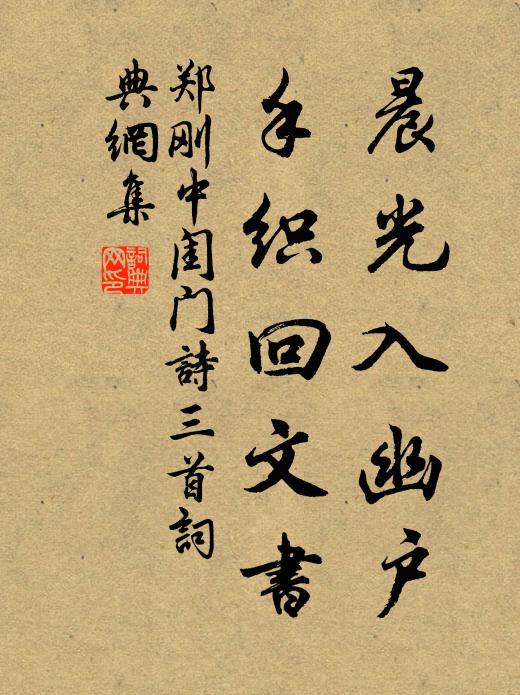 晨光入幽户
手织回文書
郑刚中闺门詩三首詞
典網集
詞典
网印